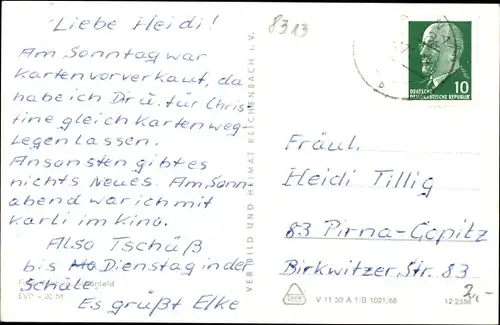 Liebe Heidi!
Am Sonntag war
Kartenvorverkauf, da
habe ich Dir u. für Chris-
tine gleich Karten weg-
legen lassen.
Ansonsten gibt es
nichts Neues. Am Sonn-
abend war ich mit
Karli im Kino.
Also Tschüß
bis Dienstag in der
Schule.
Es grüßt Elke
EVP
VEB BILD UND HEIMAT REICHENBACH i. V.
8313
10
DEUTSCHE
DEMOKRATISCHE REPUBLIK
Fräul.
Heidi Tillig
83 Pirna-Copitz
Birkwitzer, Str. 83
V 11 50 A 1/B 1021/66
2,-